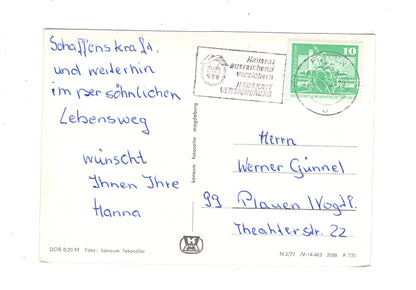 Schaffenskraft.
und weiterhin
im persöhnlichen
Lebensweg
wünscht
Ihnen Ihre
Hanna
Hausrat
ausreichend
versichern
HAUSRAT
VERSICHERUNG
10
konsum fotocolor magdeburg
Herrn
Werner Günnel
99 Plauen /Vogtl.
Theahterstr. 22
DDR 0,20 M Foto: konsum fotocolor
N 2/77 IV-14-483 2088 A 730